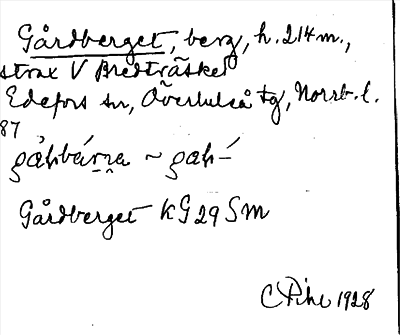 Gårdberget, berg, h. 214 m.,
strax V Bredträsket
Edefors sn, Överluleå tg, Norrb. l.
87
Gårdberget KG 29 Sm
C Pihl 1928